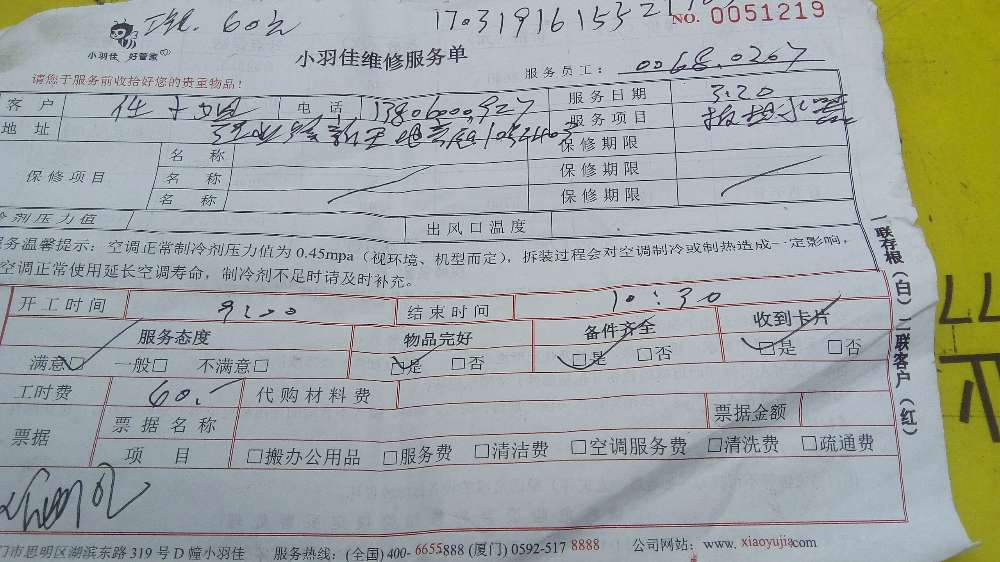 工钱. 60元
NO. 0051219
小羽佳 好管家
小羽佳维修服务单
请您于服务前收拾好您的贵重物品!
服务员工: 0068.0267
客 户
电 话
服务日期 3.20
地 址
服务项目
保修项目
名 称 保修期限
名 称 保修期限
名 称 保修期限
剂压力值
出风口温度
务温馨提示: 空调正常制冷剂压力值为 0.45mpa (视环境、机型而定), 拆装过程会对空调制冷或制热造成一定影响,
空调正常使用延长空调寿命, 制冷剂不足时请及时补充。
开工时间 9:00 结束时间 10:30
服务态度 物品完好 备件齐全 收到卡片
满意□ 一般□ 不满意□ □是 □否 □是 □否 □是 □否
工时费 60.- 代购材料费
票据 票据名称 票据金额
项 目 □搬办公用品 □服务费 □清洁费 □空调服务费 □清洗费 □疏通费
一联存根(白) 二联客户(红)
门市思明区湖滨东路 319 号 D 幢小羽佳 服务热线: (全国) 400-6655888 (厦门) 0592-517 8888 公司网站: www. xiaoyujia.com